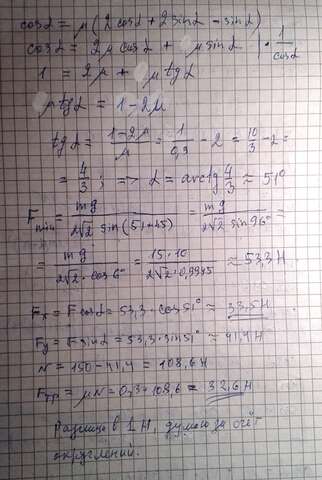 cosα = μ(2cosα + 2sinα - sinα)
cosα = 2μ cosα + μ sinα | · 1/cosα
1 = 2μ + μ tgα
μ tgα = 1 - 2μ
tgα = (1-2μ)/μ = 1/0,3 - 2 = 10/3 - 2 =
= 4/3 ; => α = arctg 4/3 ≈ 51°
Fmin = mg/(2√2 sin(51+45)) = mg/(2√2 sin96°) =
= mg/(2√2 · cos6°) = 15·10/(2√2 · 0,9945) ≈ 53,3H
Fx = F cosα = 53,3 · cos51° ≈ 33,5H
Fy = F sinα = 53,3 · sin51° ≈ 41,4H
N = 150 - 41,4 = 108,6H
Fтр = μN = 0,3 · 108,6 = 32,6H
Разница в 1H, думаю за счёт
округлений.